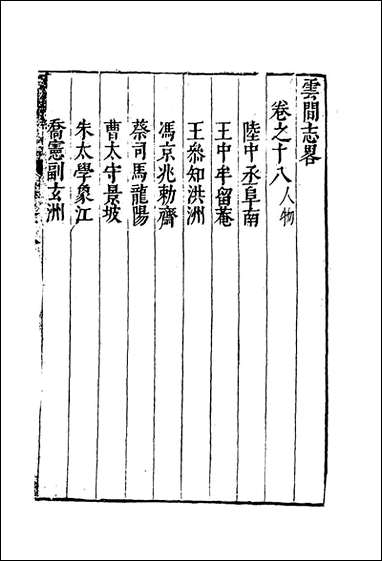 雲間志畧
卷之十八人物
陸中丞阜南
王中牟留菴
王叅知洪洲
馮京兆勅齋
蔡司馬龍陽
曹太守景坡
朱太學象江
喬憲副玄洲